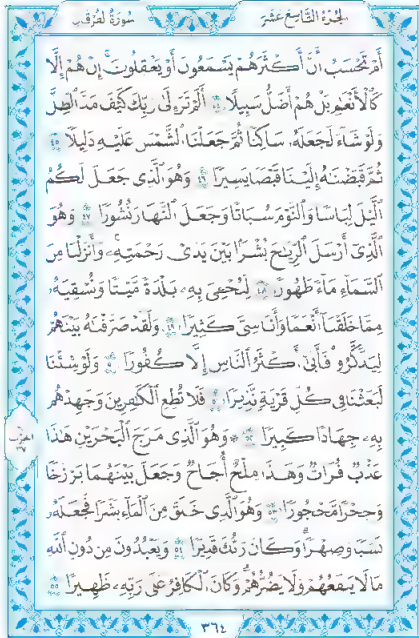 الجزء التاسع عشر
سورة الفرقان
أَمْ تَحْسَبُ أَنَّ أَكْثَرَهُمْ يَسْمَعُونَ أَوْ يَعْقِلُونَ إِنْ هُمْ إِلَّا
كَالْأَنْعَامِ بَلْ هُمْ أَضَلُّ سَبِيلًا ٤٤ أَلَمْ تَرَ إِلَى رَبِّكَ كَيْفَ مَدَّ الظِّلَّ
وَلَوْ شَاءَ لَجَعَلَهُ سَاكِنًا ثُمَّ جَعَلْنَا الشَّمْسَ عَلَيْهِ دَلِيلًا ٤٥
ثُمَّ قَبَضْنَاهُ إِلَيْنَا قَبْضًا يَسِيرًا ٤٦ وَهُوَ الَّذِي جَعَلَ لَكُمُ
الَّيْلَ لِبَاسًا وَالنَّوْمَ سُبَاتًا وَجَعَلَ النَّهَارَ نُشُورًا ٤٧ وَهُوَ
الَّذِي أَرْسَلَ الرِّيَاحَ بُشْرًا بَيْنَ يَدَيْ رَحْمَتِهِ وَأَنْزَلْنَا مِنَ
السَّمَاءِ مَاءً طَهُورًا ٤٨ لِنُحْيِيَ بِهِ بَلْدَةً مَيْتًا وَنُسْقِيَهُ
مِمَّا خَلَقْنَا أَنْعَامًا وَأَنَاسِيَّ كَثِيرًا ٤٩ وَلَقَدْ صَرَّفْنَاهُ بَيْنَهُمْ
لِيَذَّكَّرُوا فَأَبَى أَكْثَرُ النَّاسِ إِلَّا كُفُورًا ٥٠ وَلَوْ شِئْنَا
لَبَعَثْنَا فِي كُلِّ قَرْيَةٍ نَذِيرًا ٥١ فَلَا تُطِعِ الْكَافِرِينَ وَجَاهِدْهُمْ
بِهِ جِهَادًا كَبِيرًا ٥٢ ۞ وَهُوَ الَّذِي مَرَجَ الْبَحْرَيْنِ هَذَا
عَذْبٌ فُرَاتٌ وَهَذَا مِلْحٌ أُجَاجٌ وَجَعَلَ بَيْنَهُمَا بَرْزَخًا
وَحِجْرًا مَحْجُورًا ٥٣ وَهُوَ الَّذِي خَلَقَ مِنَ الْمَاءِ بَشَرًا فَجَعَلَهُ
نَسَبًا وَصِهْرًا وَكَانَ رَبُّكَ قَدِيرًا ٥٤ وَيَعْبُدُونَ مِنْ دُونِ اللَّهِ
مَا لَا يَنْفَعُهُمْ وَلَا يَضُرُّهُمْ وَكَانَ الْكَافِرُ عَلَى رَبِّهِ ظَهِيرًا ٥٥
الحزب
٣٧
٣٦٤